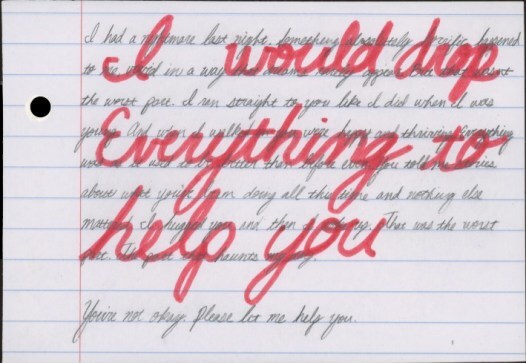 I had a nightmare last night. Something absolutely horrific happened
to me
the worst part. I ran straight to you like I did when I was
young. And when I walked in you were happy and thriving. Everything
was better than before even. You told me stories
about what you'd been doing all this time and nothing else
mattered. I hugged you and then That was the worst
part. haunts
You're not okay. Please let me help you.
I would drop
Everything to
help you